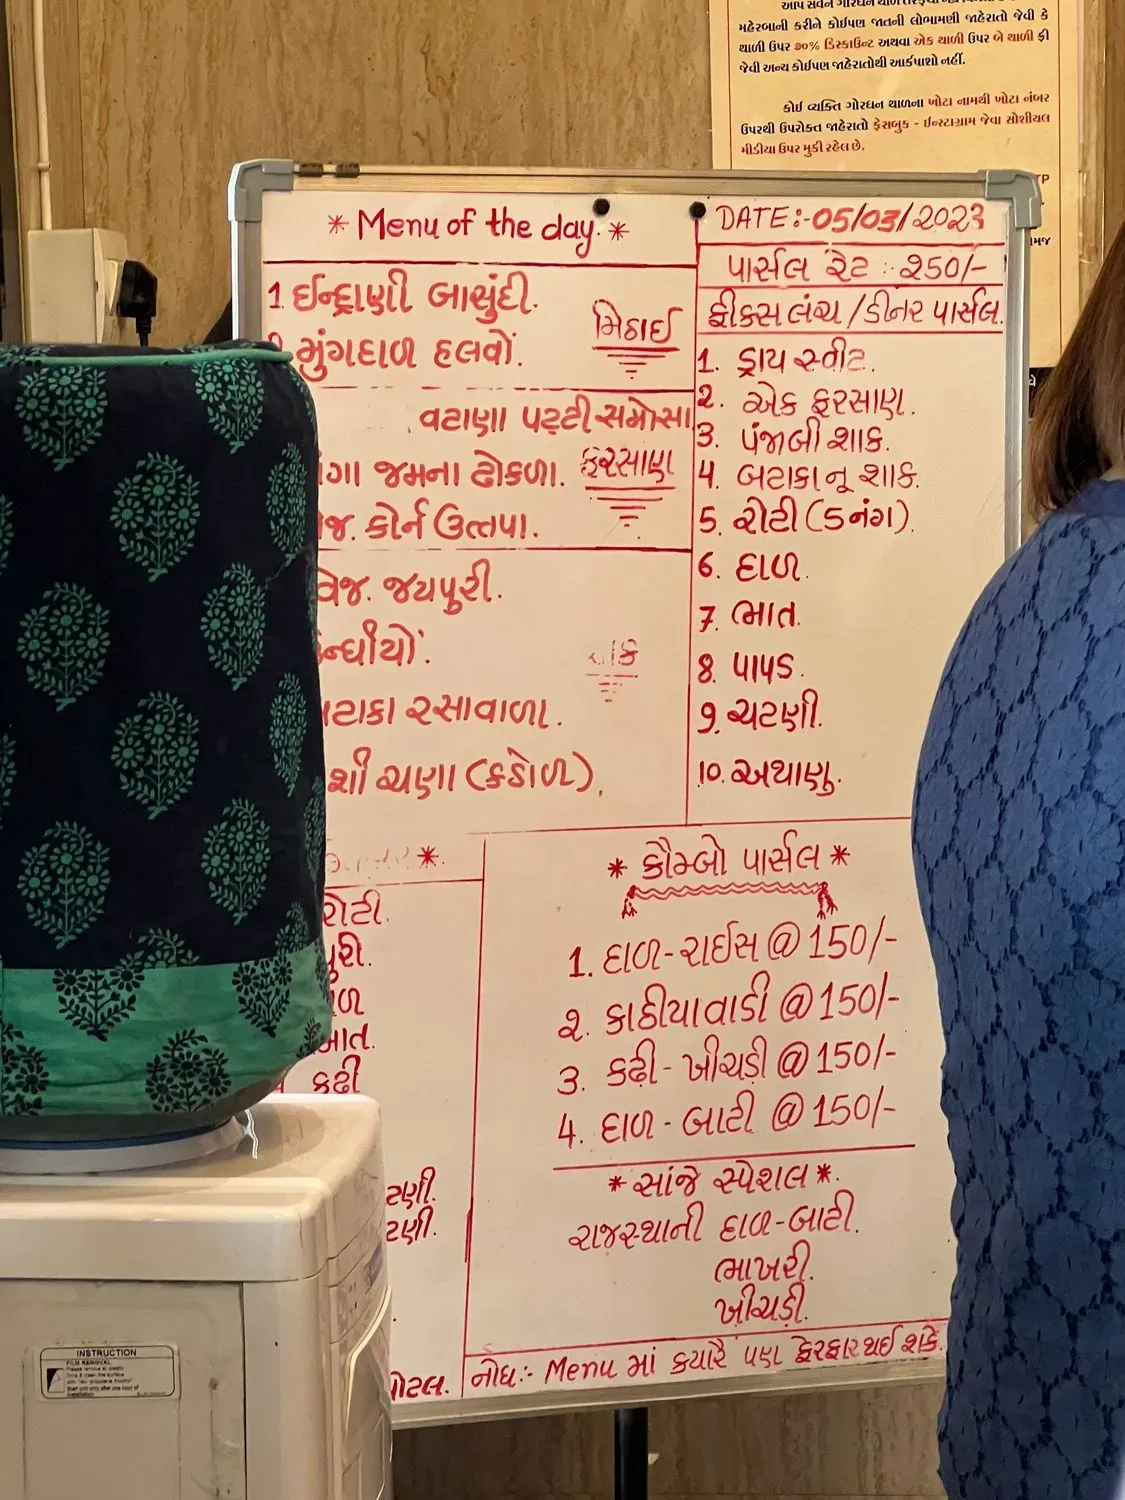 મહેરબાની કરીને કોઈપણ જાતની લોભામણી જાહેરાતો જેવી કે
થાળી ઉપર ૭૦% ડિસ્કાઉન્ટ અથવા એક થાળી ઉપર બે થાળી ફ્રી
જેવી અન્ય કોઈપણ જાહેરાતોથી આર્કષાશો નહીં.
કોઈ વ્યક્તિ ગોરધન થાળના ખોટા નામથી ખોટા નંબર
ઉપરથી ઉપરોક્ત જાહેરાતો ફેસબુક - ઈન્સ્ટાગ્રામ જેવા સોશીયલ
મીડીયા ઉપર મુકી રહેલ છે.
* Menu of the day. *
1 ઈન્દ્રાણી બાસુંદી.
મુંગદાળ હલવો.
મિઠાઈ
વટાણા પટ્ટી સમોસા
ગા જમના ઢોકળા.
ફરસાણ
જ. કોર્ન ઉત્તપા.
વેજ. જયપુરી.
ન્ધીયો.
ટાકા રસાવાળા.
શી ચણા (કઠોળ).
DATE:-05/03/2023
પાર્સલ રેટ :- ૨50/-
ફીક્સ લંચ / ડીનર પાર્સલ.
1. ડ્રાય સ્વીટ.
2. એક ફરસાણ.
3. પંજાબી શાક.
4. બટાકા નૂ શાક.
5. રોટી (5 નંગ).
6. દાળ.
7. ભાત.
8. પાપડ.
9. ચટણી.
10. અથાણુ.
રોટી.
પુરી.
ળ
ભાત.
કઢી
ટણી.
ટણી.
ોટલ.
* કૌમ્બો પાર્સલ *
1. દાળ-રાઈસ @ 150/-
૨. કાઠીયાવાડી @ 150/-
3. કઢી - ખીચડી @ 150/-
4. દાળ - બાટી @ 150/-
* સાંજે સ્પેશલ *.
રાજસ્થાની દાળ-બાટી.
ભાખરી.
ખીચડી.
નોધ:- Menu માં ક્યારૈ પણ ફેરફાર થઈ શકે.
INSTRUCTION
FILM REMOVAL